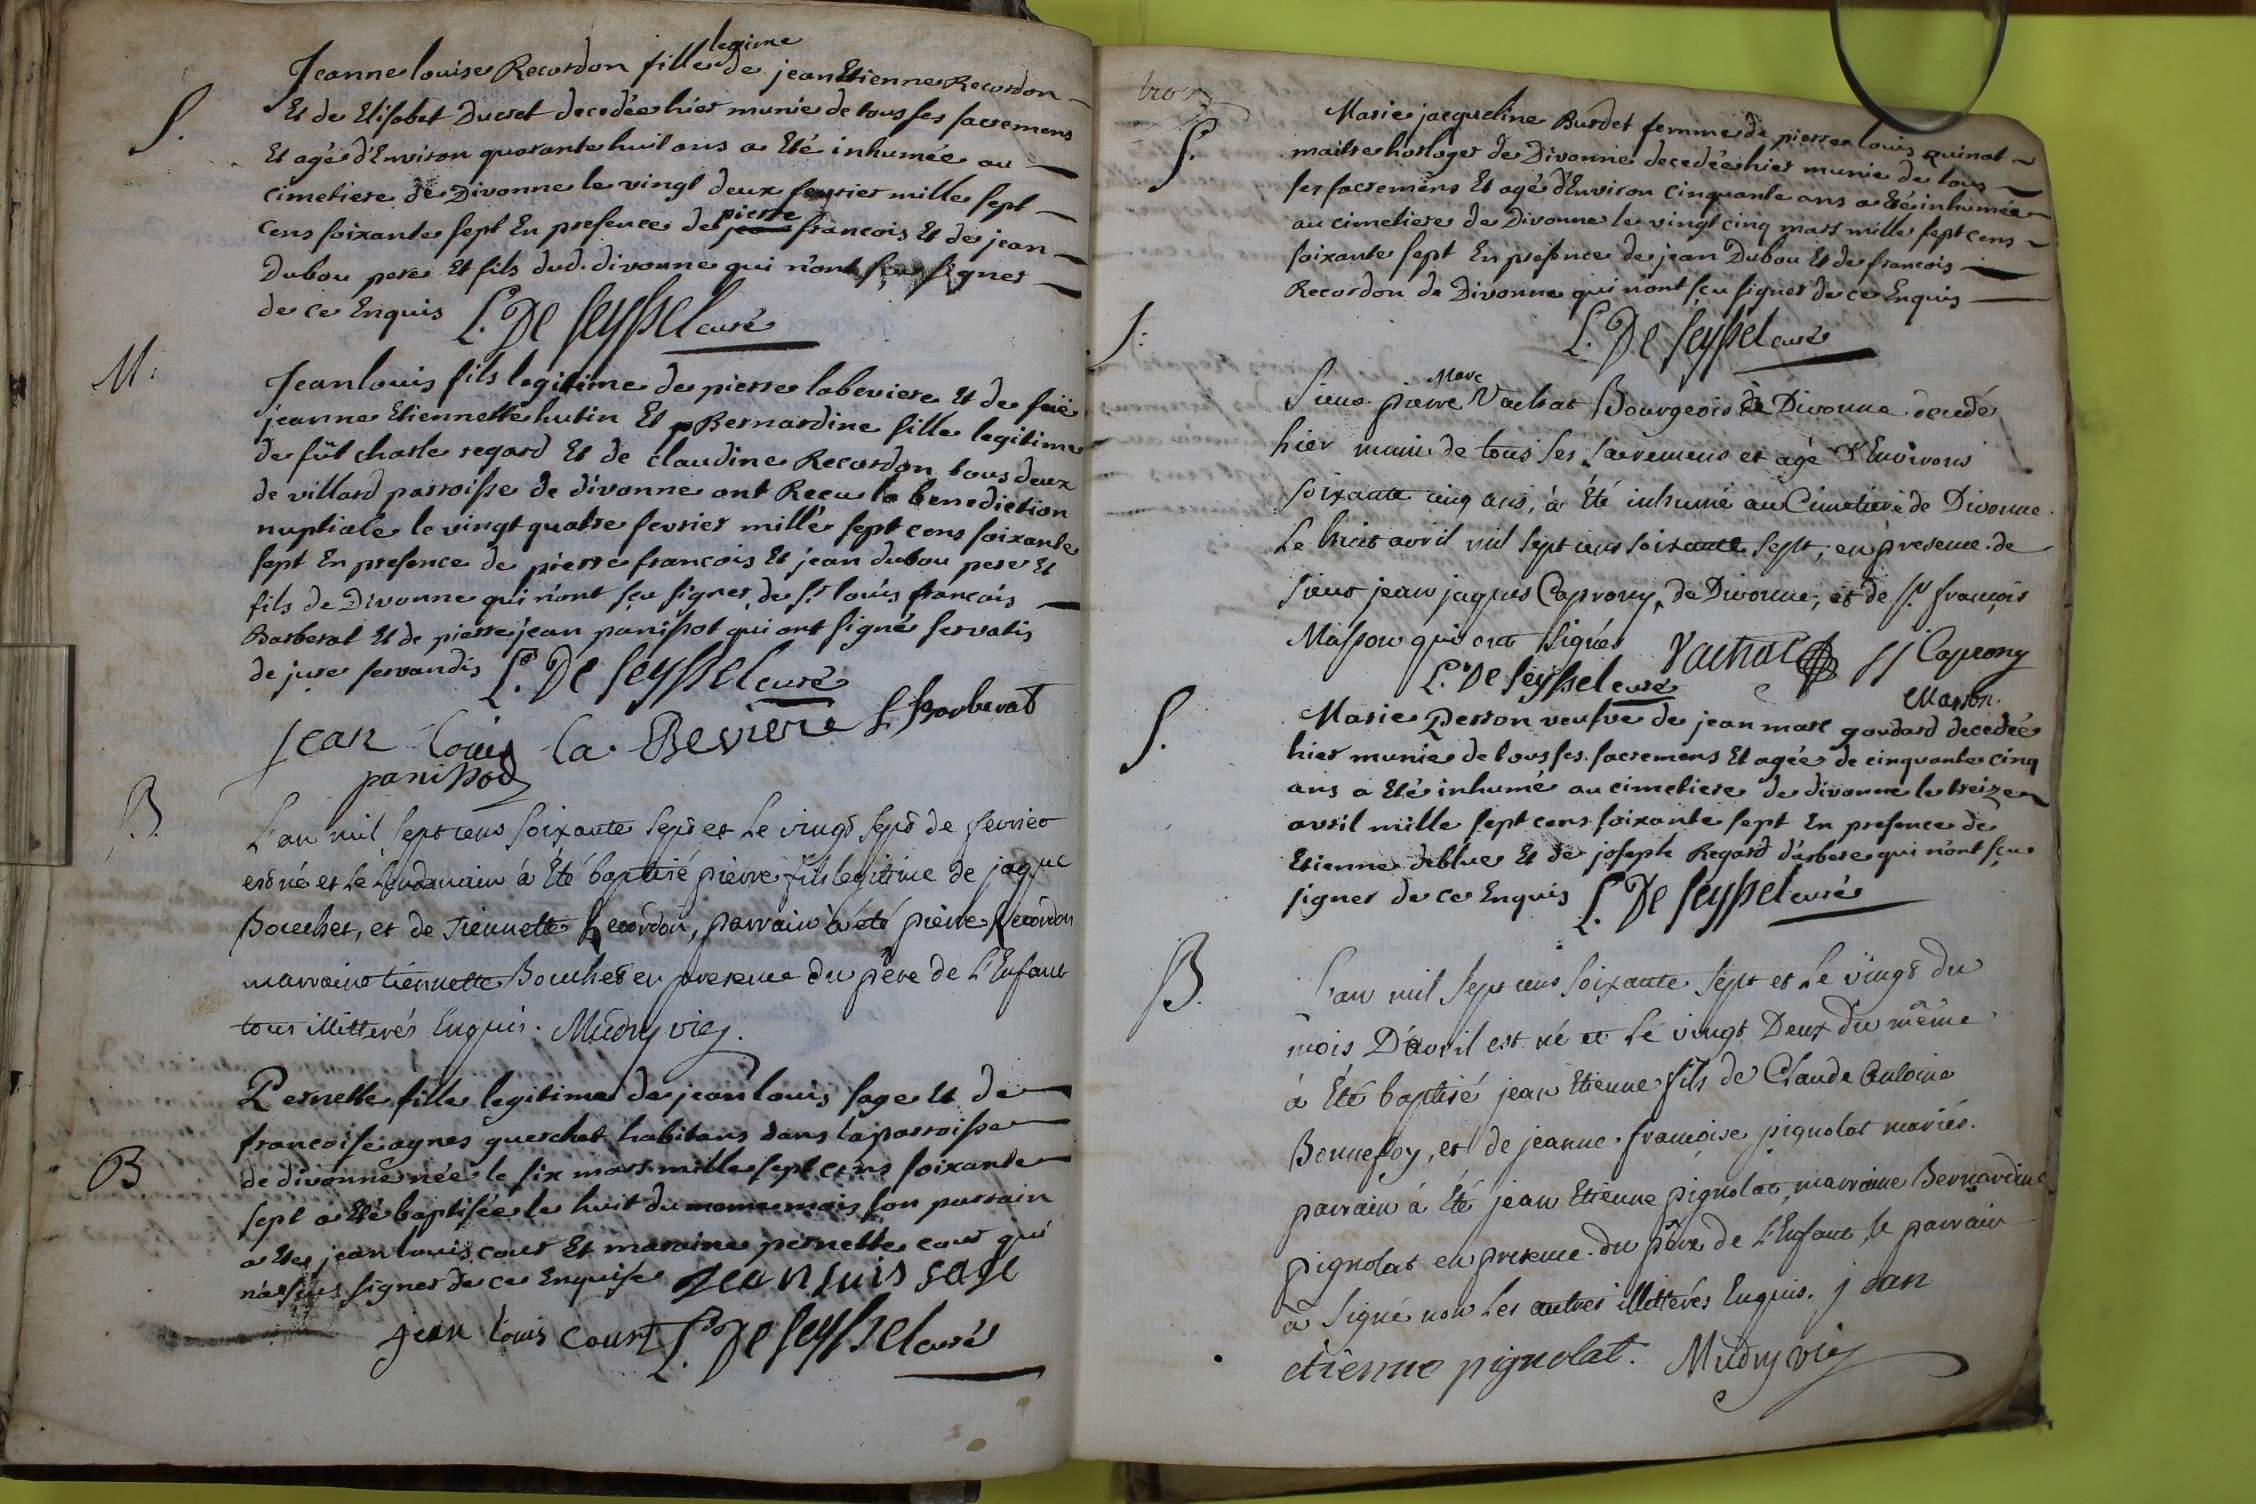 legime
Jeanne louise Recordon fille de jean Etienne Recordon
S. Et de Elisabet Ducret decedée hier munie de tous ses sacremens
Et agée d'Environ quarante huit ans a Eté inhumée au
cimetiere de Divonne le vingt deux fevrier mille sept
pierre
cens soixante sept En presence de jean francois Et de jean
Dubou pere Et fils dud. divonne qui n'ont sçu signer
de ce Enquis L. De Seyssel curé
M. Jean louis fils legitime de pierre labeviere Et de füe
jeanne Etiennette hutin Et Bernardine fille legitime
de fût charle regard Et de claudine Recordon tous deux
de villard parroisse de divonne ont Recu la benediction
nuptiale le vingt quatre fevrier mille sept cens soixante
sept En presence de pierre francois Et jean dubou pere Et
fils de Divonne qui n'ont sçu signer, de Sr louis francois
Barberat Et de pierre jean panissot qui ont signé servatis
de jure servandis L. De Seyssel curé
jean louis la Beviere L Barberat
panissod
B. L'an mil sept cens soixante sept et le vingt sept de fevrier
est né et le lendemain à été baptisé pierre fils legitime de jaque
Bouchet, et de Tiennette Recordon, parrain à été pierre Recordon
marraine tiennette Bouchet en presence du père de l'Enfant
tous illitterés Enquis. Mudry vic.
Pernette fille legitime de jean louis sage Et de
francoise aynes querchet habitans dans la parroisse
B de divonne née le six mars mille sept cens soixante
sept a Eté baptisée le huit du meme mois son parrain
a Ete jean louis cour Et maraine pernette cour qui
signer de ce Enquise Jean luis sage
jean louis court L. De Seyssel curé
trois
Marie jacqueline Burdet femme de pierre louis quinat
S. maitre horloger de Divonne decedée hier munie de tous
ses sacremens Et agé d'Environ cinquante ans a Eté inhumée
au cimetiere de Divonne le vingt cinq mars mille sept cens
soixante sept En presence de jean Dubou Et de francois
Recordon de Divonne qui n'ont sçu signer de ce Enquis
L. De Seyssel curé
S. Marc
Sieur pierre Vachat Bourgeois de Divonne decedé
hier muni de tous ses sacremens et agé d'Environ
soixante cinq ans, à été inhumé au Cimetière de Divonne
le huit avril mil sept cens soixante sept, en présence de
sieur jean jaques Caprony, de Divonne, et de Sr françois
Masson qui ont signés Vachat jj Caprony
L. De Seyssel curé Masson.
S. Marie Perron veufve de jean marc goudard decedée
hier munie de tous ses sacremens Et agée de cinquante cinq
ans a Eté inhumé au cimetiere de divonne le treize
avril mille sept cens soixante sept En presence de
Etienne deblue Et de joseph Regard d'arbere qui n'ont sçu
signer de ce Enquis L. De Seyssel curé
B. L'an mil sept cens soixante sept et le vingt du
mois D'avril est né et le vingt Deux du même
à Eté baptisé jean Etienne fils de Claude Antoine
Bonnefoy, et de jeanne françoise pignolat mariés.
parrain à été jean Etienne pignolat, marraine Bernardine
pignolat en presence du père de l'Enfant, le parrain
à signé non les autres illitterés Enquis. jean
etienne pignolat. Mudry vic